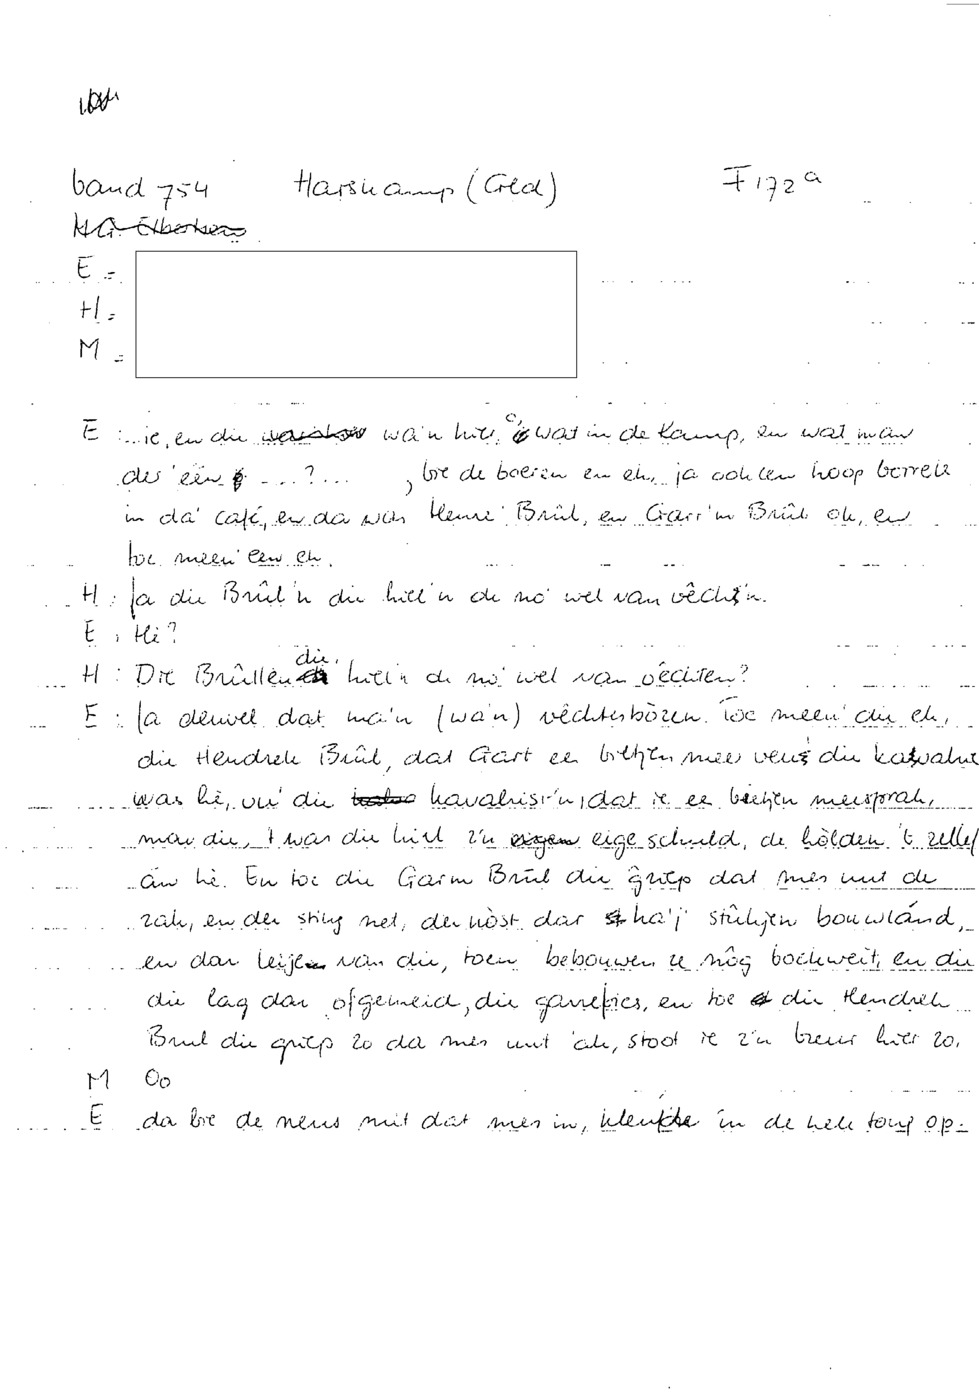 band 754 Harskamp (Gld) F 172a
E =
H =
M =
E : ...ie, en die wa'n hier, wat in de Kamp, en wat man
der eën ...?... , bie de boeren en eh, ja ook een hoop berrek
in da' café, en da was Henne' Brûl, en Garr'm Brûl ok, en
toe meen' een eh.
H : Ja die Brûl'n die hiel'n de no' wel van vêcht'n.
E : Hè?
H : Die Brûllen die hiel'n de no' wel van vèchten?
E : Ja deuvel dat ma'n (wa'n) vêchtersbözen. Toe meen' die eh,
die Hendrek Brûl, dat Gart ee bietjen mee veur die
was hè, vu' die kavalrist'n, dat ie ee bietjen meesprak,
mar die, 't was die hiel z'n eige schuld, de hölden 't zellef
ân hè. En toe die Garm Brûl die griep dat mes uut de
zak, en der sting net, der nòst dar ha'j stûkjen bouwlánd,
en dar leije van die, toen bebouwen ze nôg boekweit, en die
die lag dar ofgemeid, die en toe die Hendrek
Brul die griep zo da mes uut 'ak, stoot ie z'n breur hier zo.
M Oo
E da bie de neus mit dat mes in, in de hele tong op-